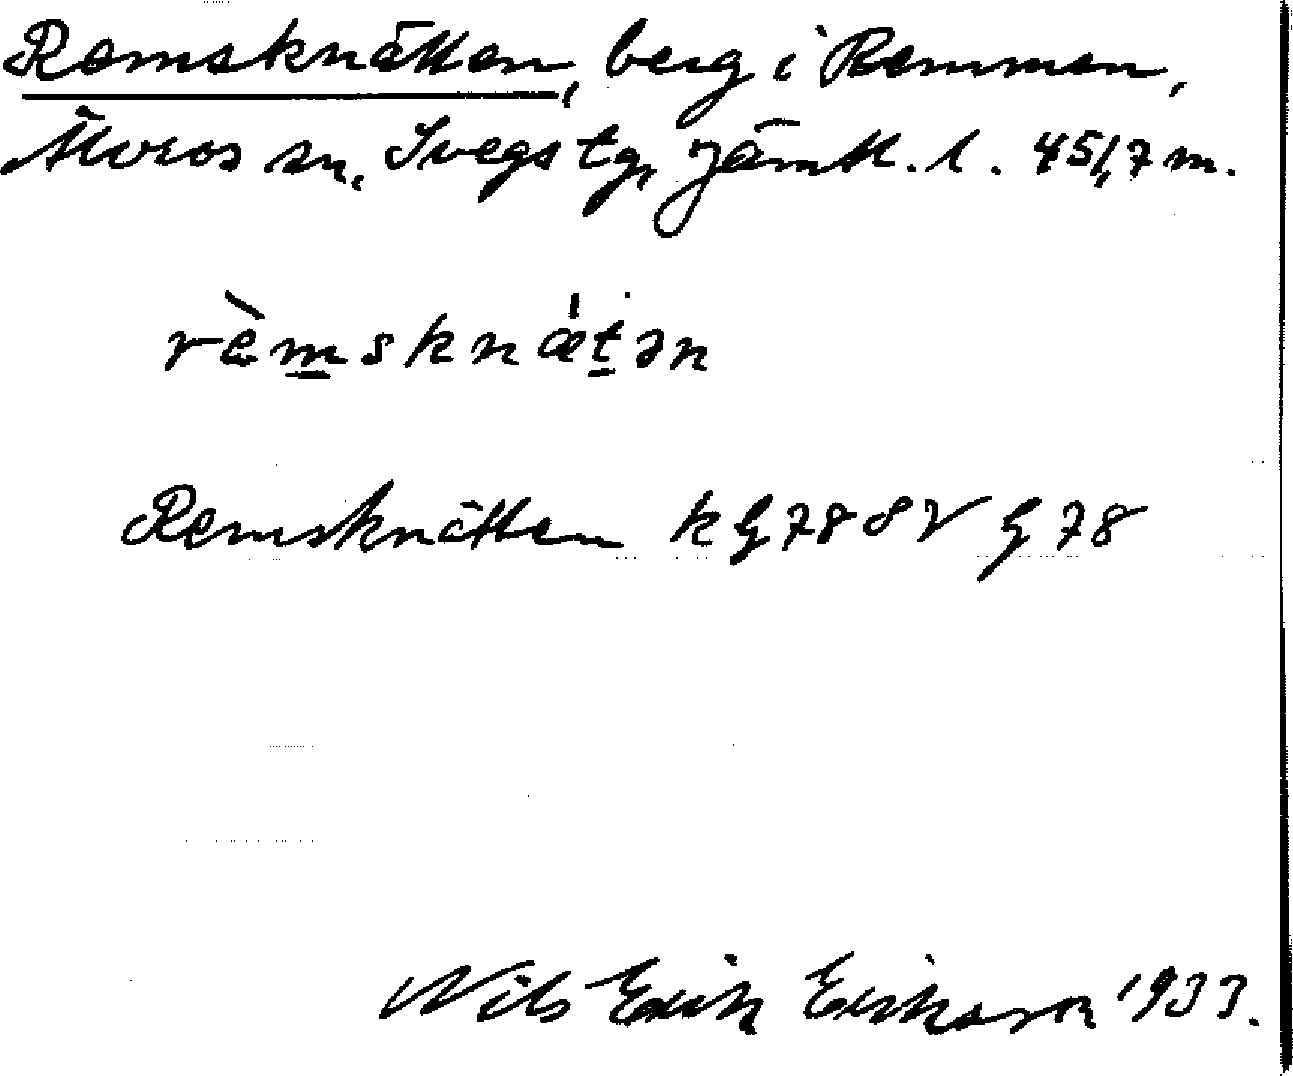 Remsknätten, berg i Remmen,
Älvros sn, Svegs tg, Jämtl. l. 451,7 m.
rèm̲sknæ̍t̲ən
Remsknätten k G 78 SV G 78
Nils Erik Eriksson 1933.